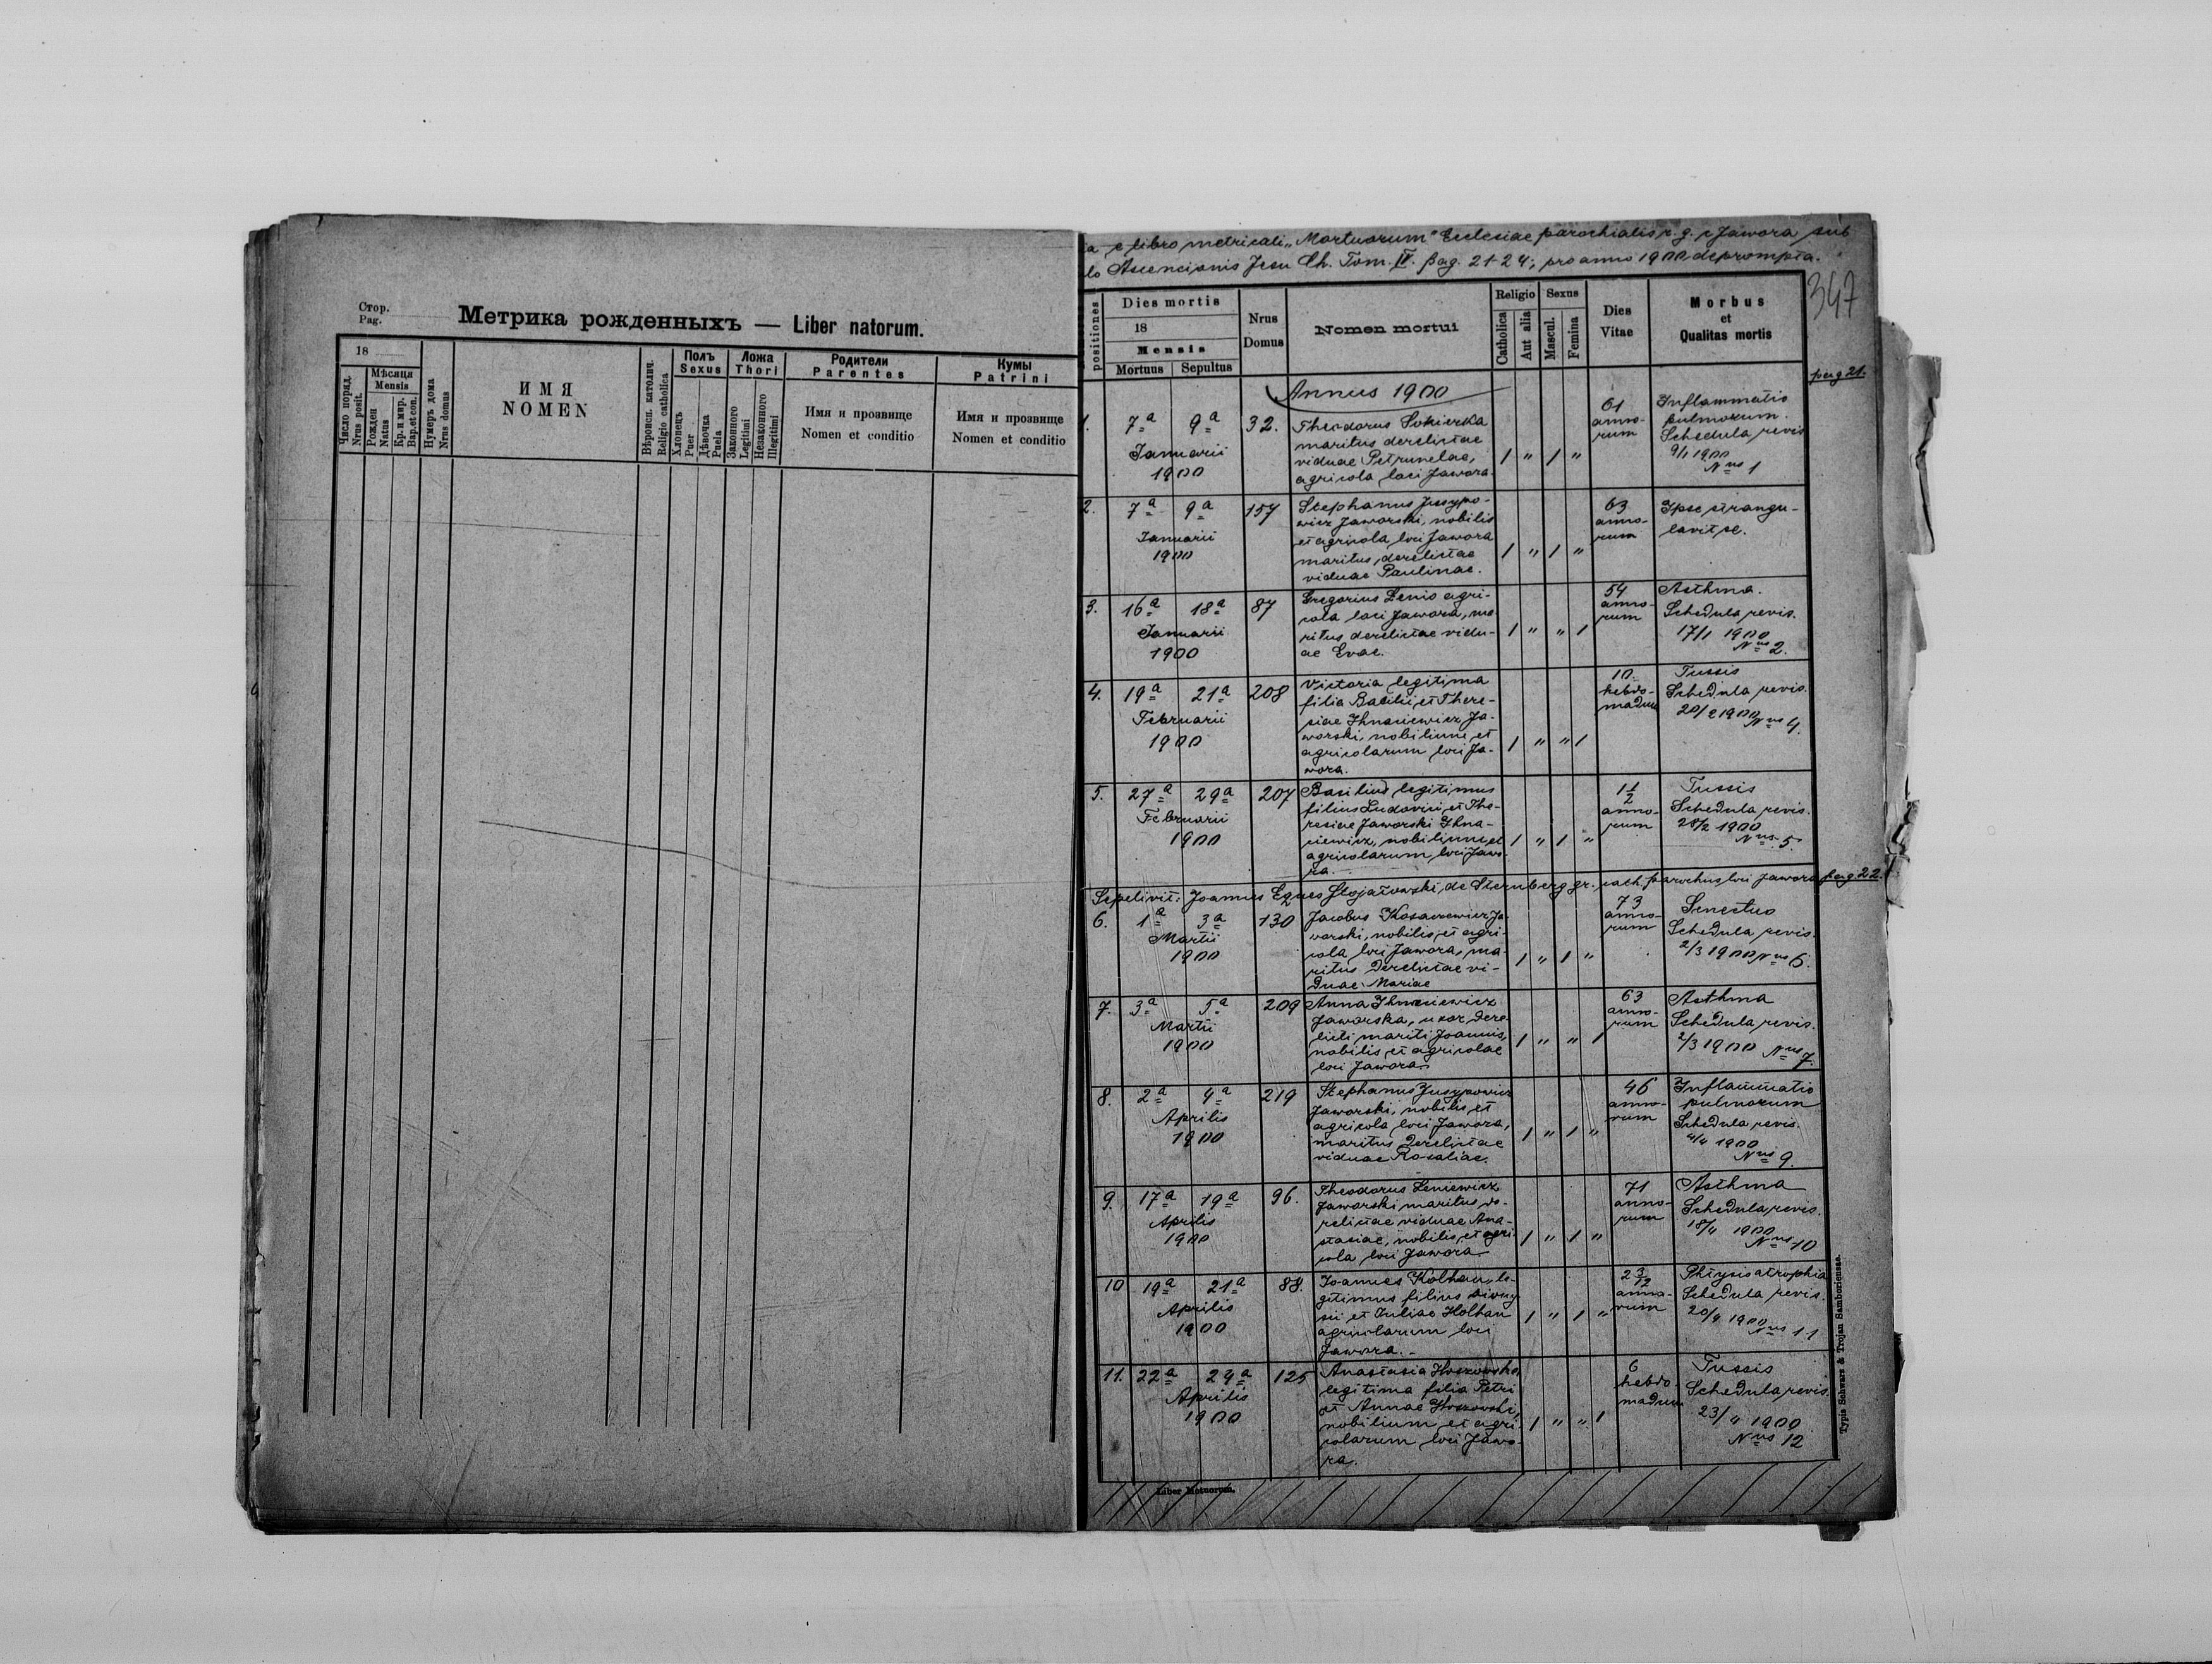 Стор.
Pag.
Метрика рожденныхъ — Liber natorum.
18
Число поряд.
Nrus posit.
Мѣсяця
Mensis
Рожден
Natus
Кр. и мир.
Bap. et con.
Нумеръ дома
Nrus domus
ИМЯ
NOMEN
Вѣроисп. католич.
Religio catholica
Полъ
Sexus
Хлопецъ
Puer
Дѣвочка
Puela
Ложа
Thori
Законного
Legitimi
Незаконного
Illegitimi
Родители
Parentes
Имя и прозвище
Nomen et conditio
Кумы
Patrini
Имя и прозвище
Nomen et conditio
a e libro metricali „Mortuorum" Ecclesiae parochialis r. g. Jawora sub
lo Ascencionis Jesu Ch. Tom. IV. pag. 21-24; pro anno 1900 deprompta.
347
positiones
Dies mortis
18
Mensis
Mortuus Sepultus
Nrus
Domus
Nomen mortui
Religio
Catholica
Aut alia
Sexus
Mascul.
Femina
Dies
Vitae
Morbus
et
Qualitas mortis
Annus 1900
pag 21.
1. 7a 9a
Januarii
1900
32.
Theodorus
maritus derelictae
viduae Petrunelae,
agricola loci Jawora
1 " 1 "
61
anno-
rum
Inflammatio
pulmorum.
Schedula revis
9/1 1900
Nus 1
2. 7a 9a
Januarii
1900
157
Stephanus Jusypo-
wicz Jaworski, nobilis
et agricola loci Jawora
maritus derelictae
viduae Paulinae.
1 " 1 "
63
anno-
rum
Ipse strangu-
lavit se.
3. 16a 18a
Januarii
1900
87
Gregorius Lenio agri-
cola loci Jawora, ma
ritus derelictae vidu-
ae Evae.
1 " " 1
54
anno-
rum
Asthma.
Schedula revis.
17/1 1900
Nus 2.
4. 19a 21a
Februarii
1900
208
Victoria legitima
filia Basilii et There-
siae Ihnaciewicz Ja-
worski, nobilium et
agricolarum loci Ja-
wora.
1 " " 1
10
hebdo-
madum
Tussis
Schedula revis.
20/2 1900
Nus 4.
5. 27a 29a
Februarii
1900
207
Basilius legitimus
filius Ludovici et The-
resiae Jaworski Ihna-
ciewicz, nobilium et
agricolarum loci Jawo-
ra.
1 " 1 "
1 1/2
anno-
rum
Tussis
Schedula revis.
28/2 1900
Nus 5.
Sepelivit: Joannes Eques Stojałowski de Sternberg gr. cath. parochus loci Jawora pag. 22.
6. 1a 3a
Martii
1900
130
Jacobus Kosacewicz Ja-
worski, nobilis et agri-
cola loci Jawora, ma-
ritus derelictae vi-
duae Mariae
1 " 1 "
73
anno-
rum
Senectus
Schedula revis.
2/3 1900 Nus 6.
7. 3a 5a
Martii
1900
209
Anna Ihnaciewicz
Jaworska, uxor dere-
licti mariti Joannis,
nobilis et agricolae
loci Jawora
1 " " 1
63
anno-
rum
Asthma
Schedula revis.
2/3 1900 Nus 7.
8. 2a 4a
Aprilis
1900
219
Stephanus Jusypowicz
Jaworski, nobilis et
agricola loci Jawora,
maritus derelictae
viduae Rosaliae.
1 " 1 "
46
anno-
rum
Inflammatio
pulmorum
Schedula revis.
4/4 1900
Nus 9.
9. 17a 19a
Aprilis
1900
96.
Theodorus Leniewicz
Jaworski maritus de-
relictae viduae Ana-
stasiae, nobilis et agri-
cola loci Jawora
1 " 1 "
71
anno-
rum
Asthma
Schedula revis.
18/4 1900
Nus 10
10 19a 21a
Aprilis
1900
88.
Joannes Holhan le-
gitimus filius Diony-
sii et Juliae Holhan
agricolarum loci
Jawora.
1 " 1 "
2 3/12
anno-
rum
Phtysis atrophia
Schedula revis.
20/4 1900
Nus 11
11. 22a 24a
Aprilis
1900
125
Anastasia Hoszowska,
legitima filia Petri
et Annae Hoszowski,
nobilium et agri-
colarum loci Jawo-
ra.
1 " " 1
6
hebdo-
madum
Tussis
Schedula revis.
23/4 1900
Nus 12
Liber Motuorum.
Typis Schwarz & Trojan Samboriensae.